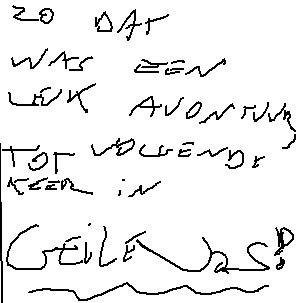 ZO DAT
WAS EEN
LEUK AVONTUUR
TOT VOLGENDE
KEER IN
GEILE